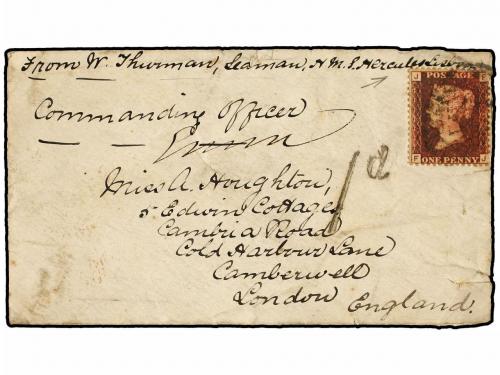 From W. Thurman, Seaman, H.M.S. Hercules
Commanding Officer
Miss A. Houghton,
5 Edwin Cottages
Cambria Road
Cold Harbour Lane
Camberwell
London
England.
1d
J F
POSTAGE
ONE PENNY
F J